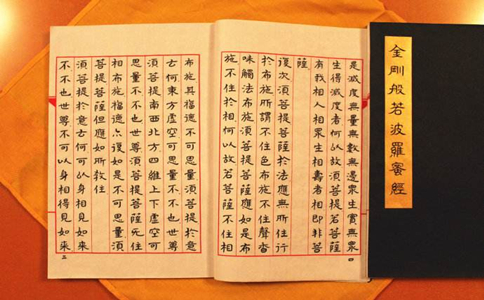 金剛般若波羅蜜經
是滅度無量無數無邊眾生實無眾
生得滅度者何以故須菩提若菩薩
有我相人相眾生相壽者相即非菩
薩
復次須菩提菩薩於法應無所住行
於布施所謂不住色布施不住聲香
味觸法布施須菩提菩薩應如是布
施不住於相何以故若菩薩不住相
四
布施其福德不可思量須菩提於意
云何東方虛空可思量不不也世尊
須菩提南西北方四維上下虛空可
思量不不也世尊須菩提菩薩无住
相布施福德亦復如是不可思量須
菩提菩薩但應如所教住
須菩提於意云何可以身相見如來
不不也世尊不可以身相得見如來